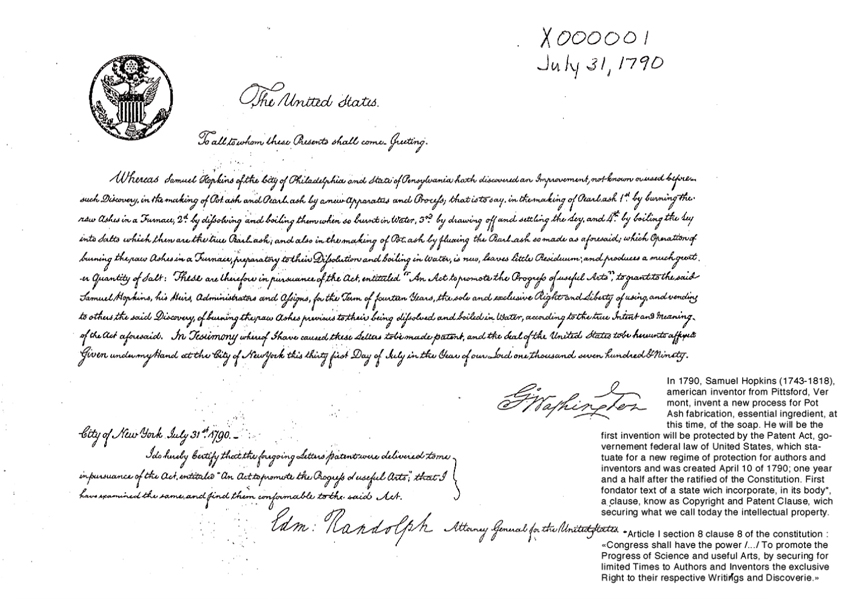 X000001
July 31, 1790
The United States.
To all to whom these Presents shall come. Greeting.
Whereas Samuel Hopkins of the City of Philadelphia and State of Pensylvania hath discovered an Improvement, not known or used before
such Discovery, in the making of Pot ash and Pearl ash by a new Apparatus and Process; that is to say, in the making of Pearl ash 1st. by burning the
raw Ashes in a Furnace, 2d. by dissolving and boiling them when so burnt in Water, 3rd. by drawing off and settling the Ley, and 4th. by boiling the Ley
into Salts which then are the true Pearl ash; and also in the making of Pot ash by fluxing the Pearl ash so made as aforesaid; which Operation of
burning the raw Ashes in a Furnace, preparatory to their Dissolution and boiling in Water, is new, leaves little Residuum; and produces a much great-
er Quantity of Salt: These are therefore in pursuance of the Act, entituled "An Act to promote the Progress of useful Arts", to grant to the said
Samuel Hopkins, his Heirs, Administrators and Assigns, for the Term of fourteen Years, the sole and exclusive Right and Liberty of using, and vending
to others the said Discovery, of burning the raw Ashes previous to their being dissolved and boiled in Water, according to the true Intent and Meaning
of the Act aforesaid. In Testimony whereof I have caused these Letters to be made patent, and the Seal of the United States to be hereunto affixed
Given under my Hand at the City of New York this thirty first Day of July in the Year of our Lord one thousand seven hundred & Ninety.
G. Washington
City of New York July 31st. 1790. _
I do hereby Certify that the foregoing Letters patent were delivered to me
in pursuance of the Act, entituled "An Act to promote the Progress of useful Arts"; that I
have examined the same, and find them conformable to the said Act.
Edm: Randolph Attorney General for the United States.
In 1790, Samuel Hopkins (1743-1818),
american inventor from Pittsford, Ver
mont, invent a new process for Pot
Ash fabrication, essential ingredient, at
this time, of the soap. He will be the
first invention will be protected by the Patent Act, go-
vernement federal law of United States, which sta-
tuate for a new regime of protection for authors and
inventors and was created April 10 of 1790; one year
and a half after the ratified of the Constitution. First
fondator text of a state wich incorporate, in its body",
a clause, know as Copyright and Patent Clause, wich
securing what we call today the intellectual property.
"Article I section 8 clause 8 of the constitution :
«Congress shall have the power /.../ To promote the
Progress of Science and useful Arts, by securing for
limited Times to Authors and Inventors the exclusive
Right to their respective Writings and Discoverie.»